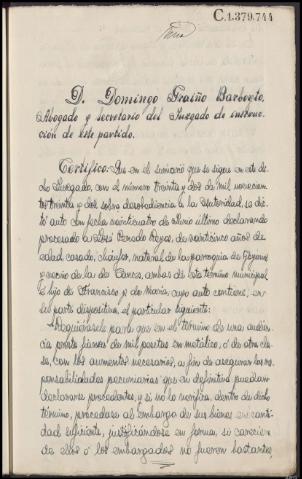 C.1.379.744
D. Domingo Fraiño Barbeyto,
Abogado y secretario del Juzgado de instruc-
ción de este partido.
Certifico: Que en el sumario que se sigue en este di-
cho Juzgado, con el número treinta y dos de mil novecien-
tos treinta y dos sobre desobediencia a la Autoridad, se dic-
tó auto con fecha veinticuatro de último declarando
procesado a José años de
edad casado, chófer, natural de la parroquia de
y vecino de la de ambas de este término municipal
e hijo de Francisco y de María, cuyo auto contiene, en
su parte dispositiva, el particular siguiente:
"Requiérasele para que en el término de una audien-
cia preste fianza de mil pesetas en metálico, o de otra cla-
se, con los aumentos necesarios, a fin de asegurar las res-
ponsabilidades pecuniarias que en definitiva puedan
declararse procedentes, y si no lo verifica, dentro de dicho
término, procédase al embargo de sus bienes en canti-
dad suficiente, justificándose en forma, si carecien
de ellos o los embargados no fueren bastantes,